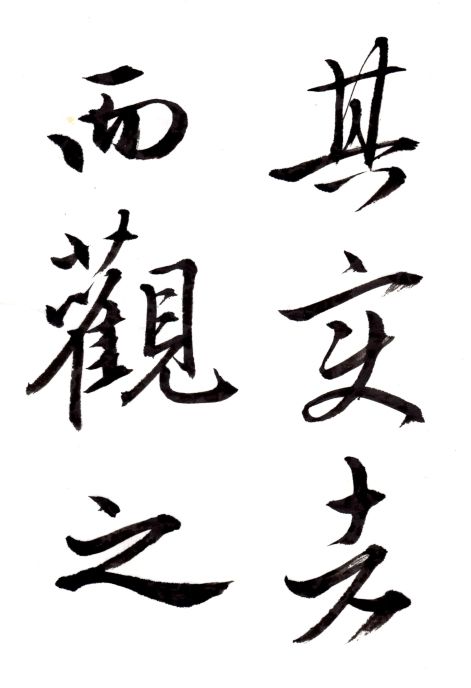 其變者
而觀之